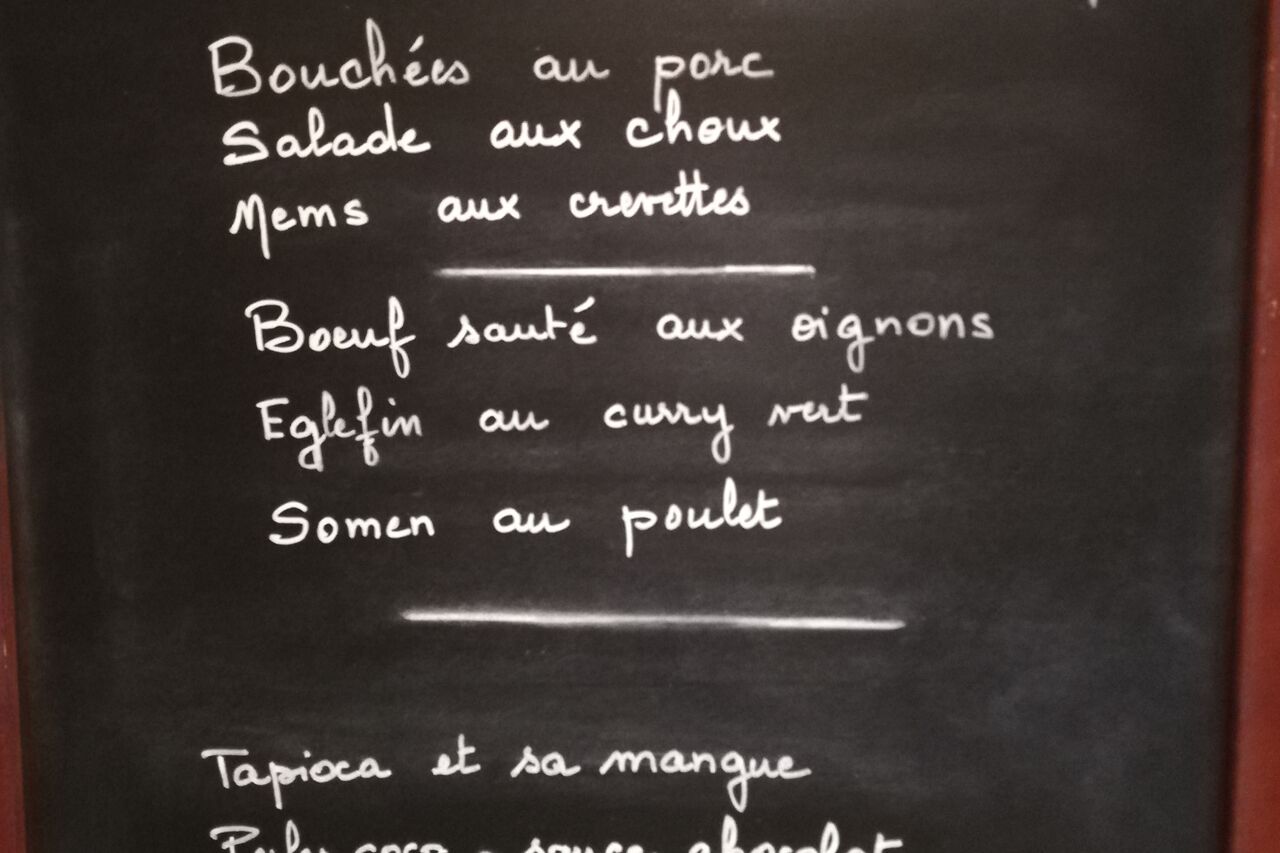 Bouchées au porc
Salade aux choux
Nems aux crevettes
Boeuf sauté aux oignons
Eglefin au curry vert
Somen au poulet
Tapioca et sa mangue
coco - sauce chocolat